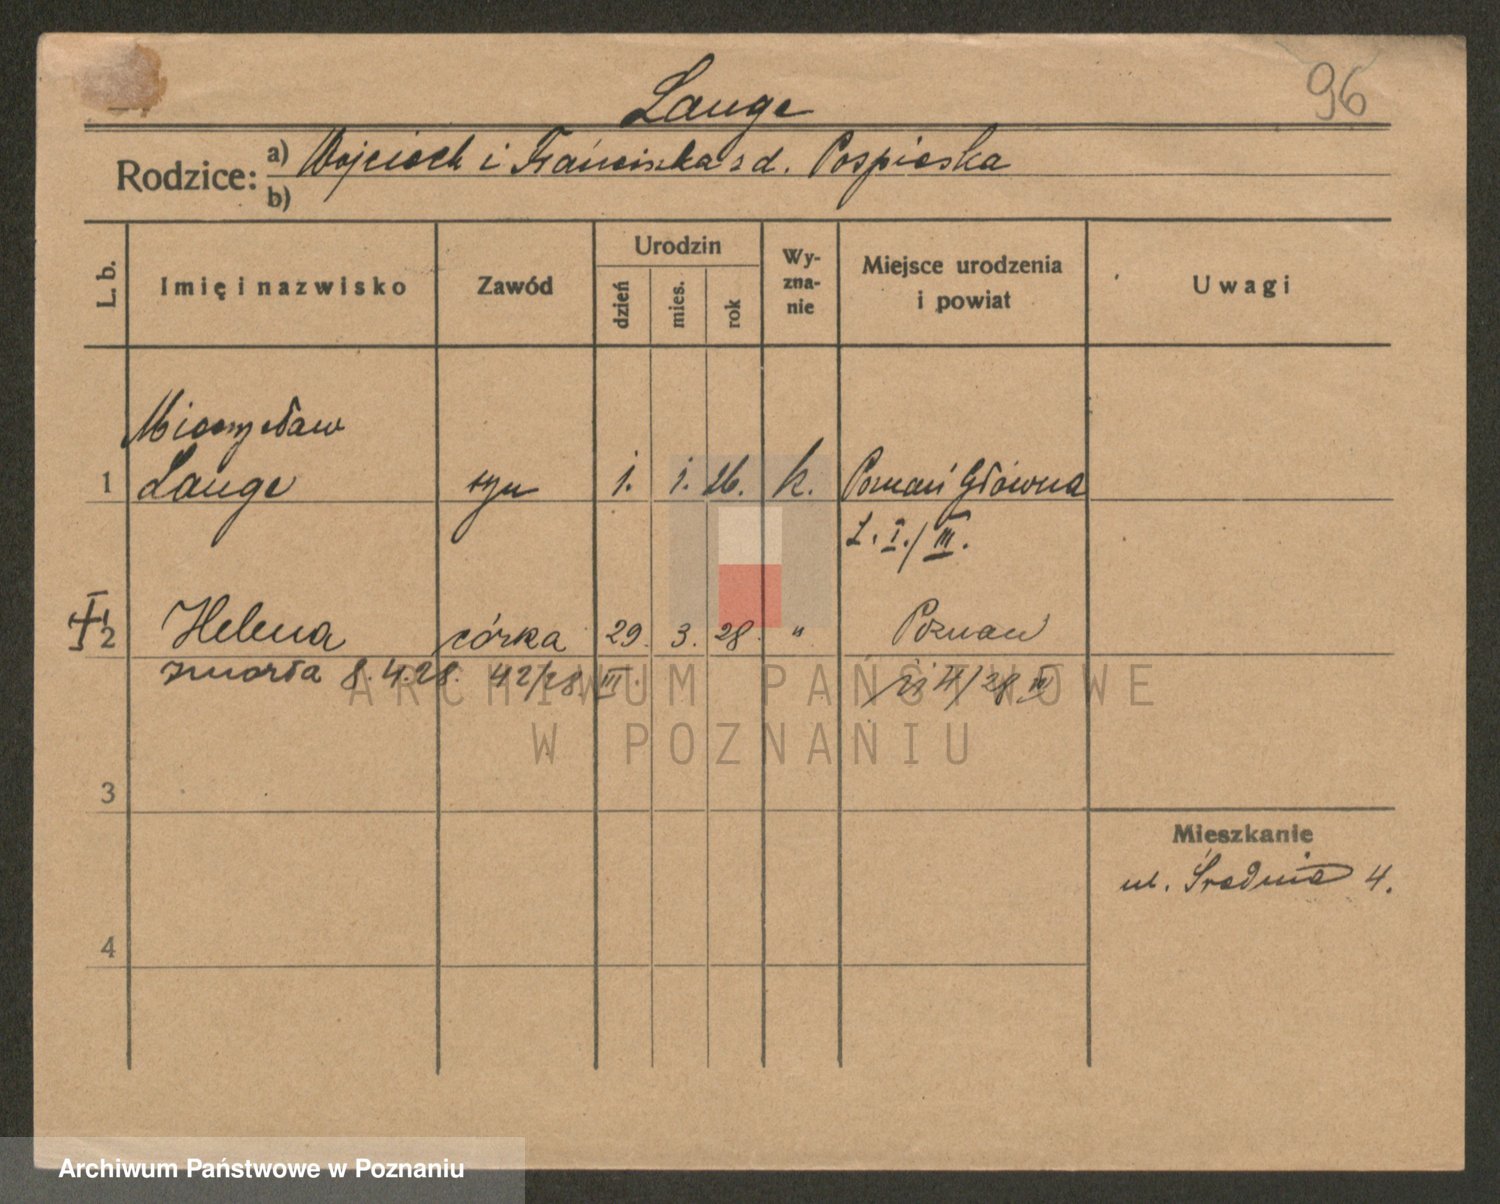 96
Lange
Rodzice: a) Wojciech i Franciszka z d. Pospieska
b)
L. b.
Imię i nazwisko
Zawód
Urodzin
dzień
mies.
rok
Wy-
zna-
nie
Miejsce urodzenia
i powiat
Uwagi
Mieczysław
1 Lange syn 1. 1. 26. k. Poznań Główna
L. I./III.
2 Helena córka 29. 3. 28. " Poznań
zmarła 8.4.28. 42/28. III. 4/28 III
3
Mieszkanie
ul. Średnia 4.
4
ARCHIWUM PAŃSTWOWE
W POZNANIU
Archiwum Państwowe w Poznaniu